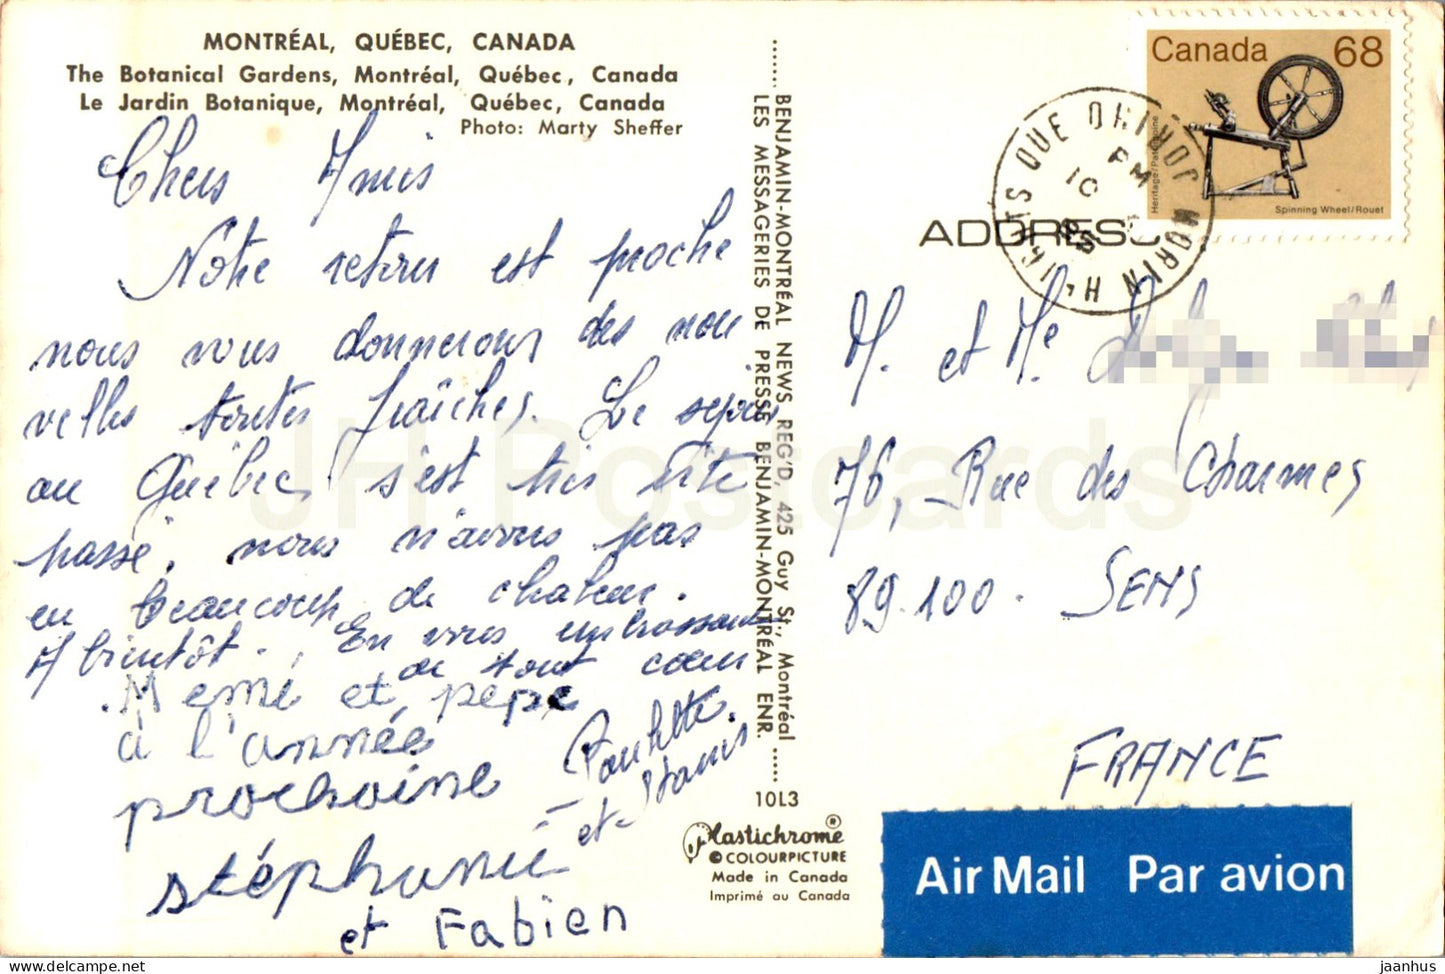 MONTRÉAL, QUÉBEC, CANADA
The Botanical Gardens, Montréal, Québec, Canada
Le Jardin Botanique, Montréal, Québec, Canada
Photo: Marty Sheffer
Chers Amis
Notre retour est proche
nous vous donnerons des nou
velles toutes fraîches. Le séjour
au Québec, s'est très vite
passé, nous n'avons pas
eu beaucoup de chaleur.
A bientôt. En vous embrassant
de tout cœur
Memé et pepe
à l'année
prochaine
Paulette
et Stanis
stéphanie
et Fabien
BENJAMIN-MONTRÉAL NEWS REG'D, 425 Guy St., Montréal
LES MESSAGERIES DE PRESSE BENJAMIN-MONTRÉAL ENR.
10L3
Plastichrome®
© COLOURPICTURE
Made in Canada
Imprimé au Canada
Canada 68
Heritage/Patrimoine
Spinning Wheel/Rouet
PM
10
MORIN H
ADDRESS
M. et Me
76, Rue des Charmes
89.100. SENS
FRANCE
Air Mail Par avion
JH Postcards
jaanhus